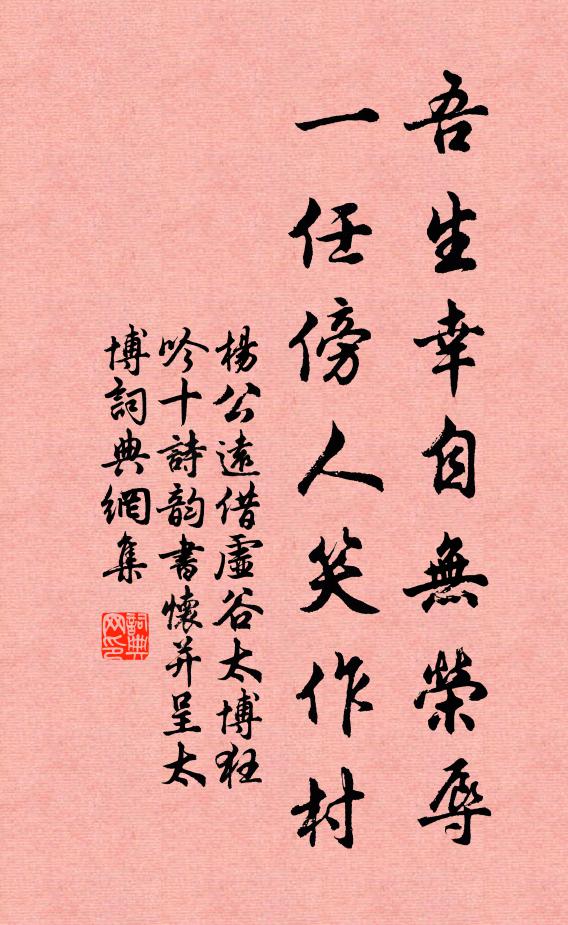 吾生幸自無榮辱
一任傍人笑作村
楊公遠借虛谷太博狂
吟十詩韵書懷并呈太
博詞典網集
詞典
网印